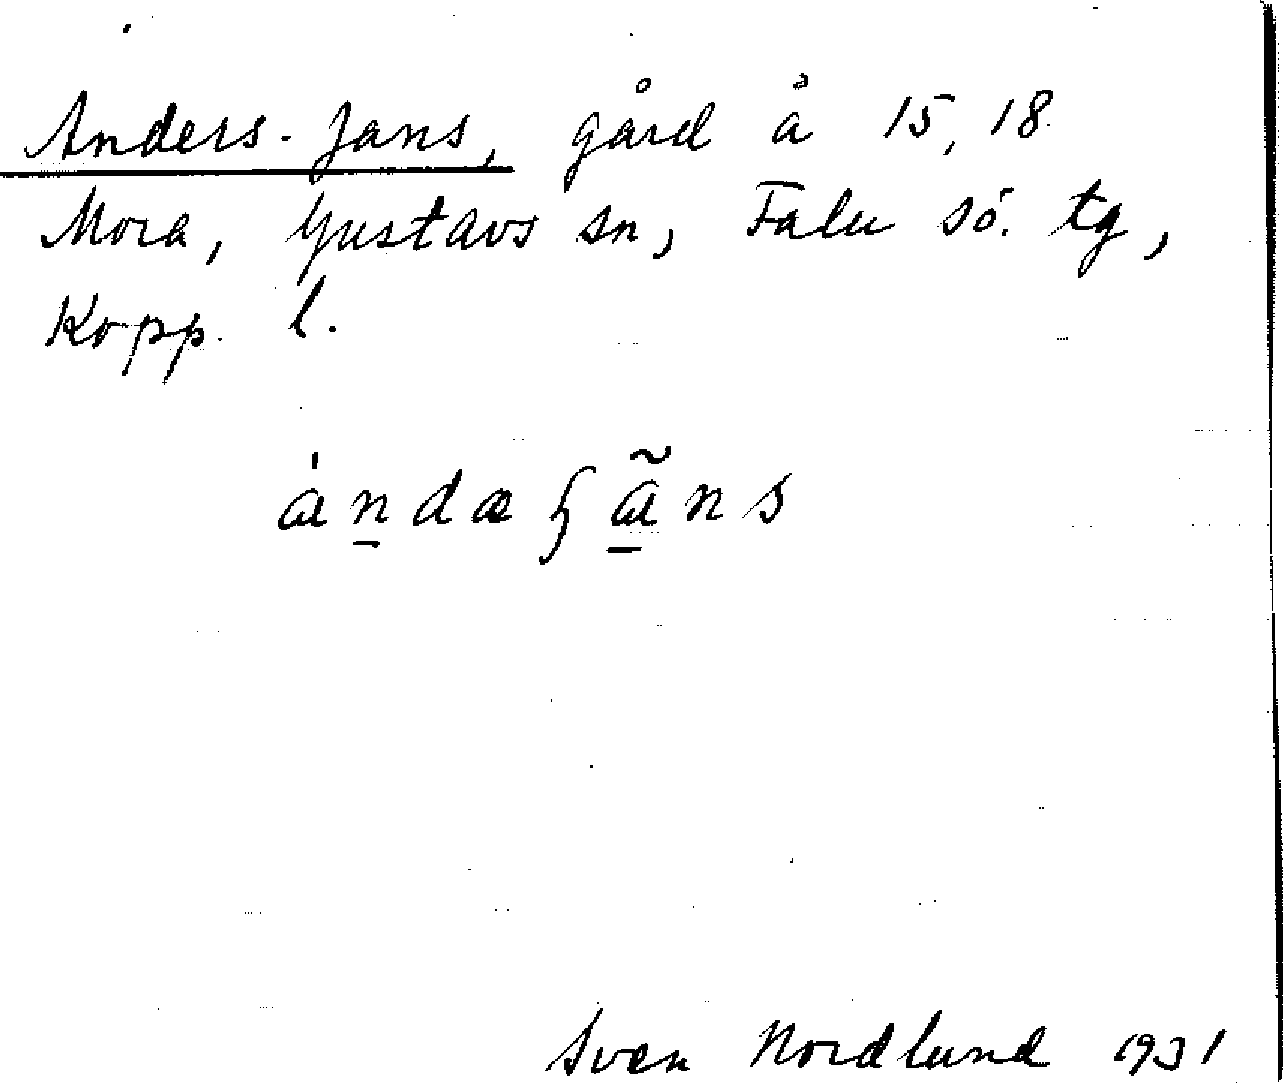 Anders-Jans, gård å 15, 18
Mora, Gustavs sn, Falu sö. tg,
Kopp. l.
àndæʃãns
Sven Nordlund 1931